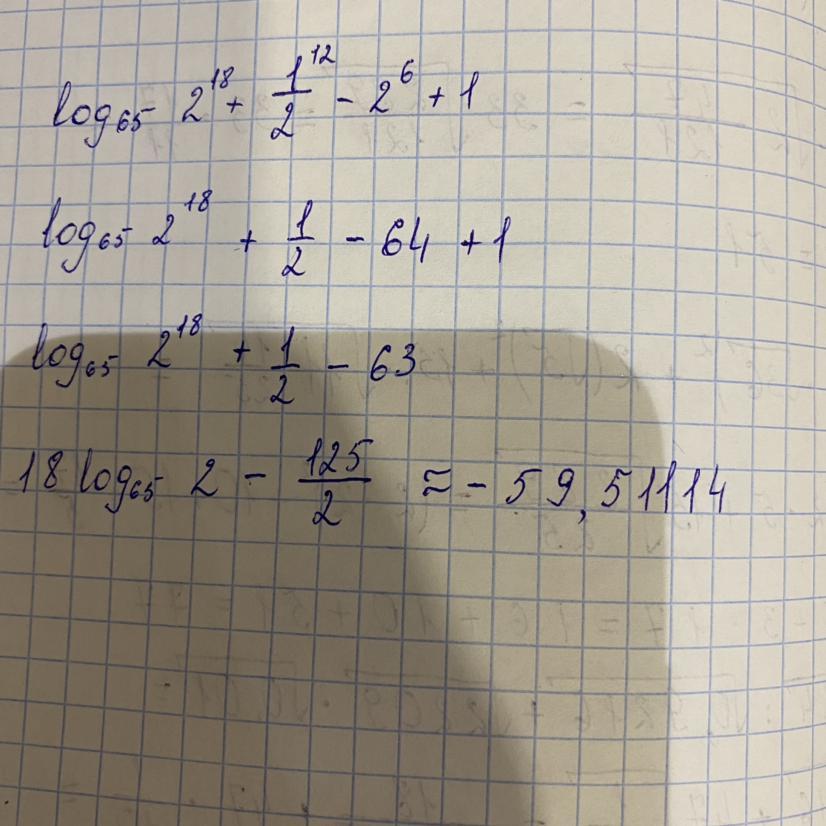 log₆₅ 2¹⁸ + 1¹²/2 - 2⁶ + 1
log₆₅ 2¹⁸ + 1/2 - 64 + 1
log₆₅ 2¹⁸ + 1/2 - 63
18 log₆₅ 2 - 125/2 ≈ - 59,51114